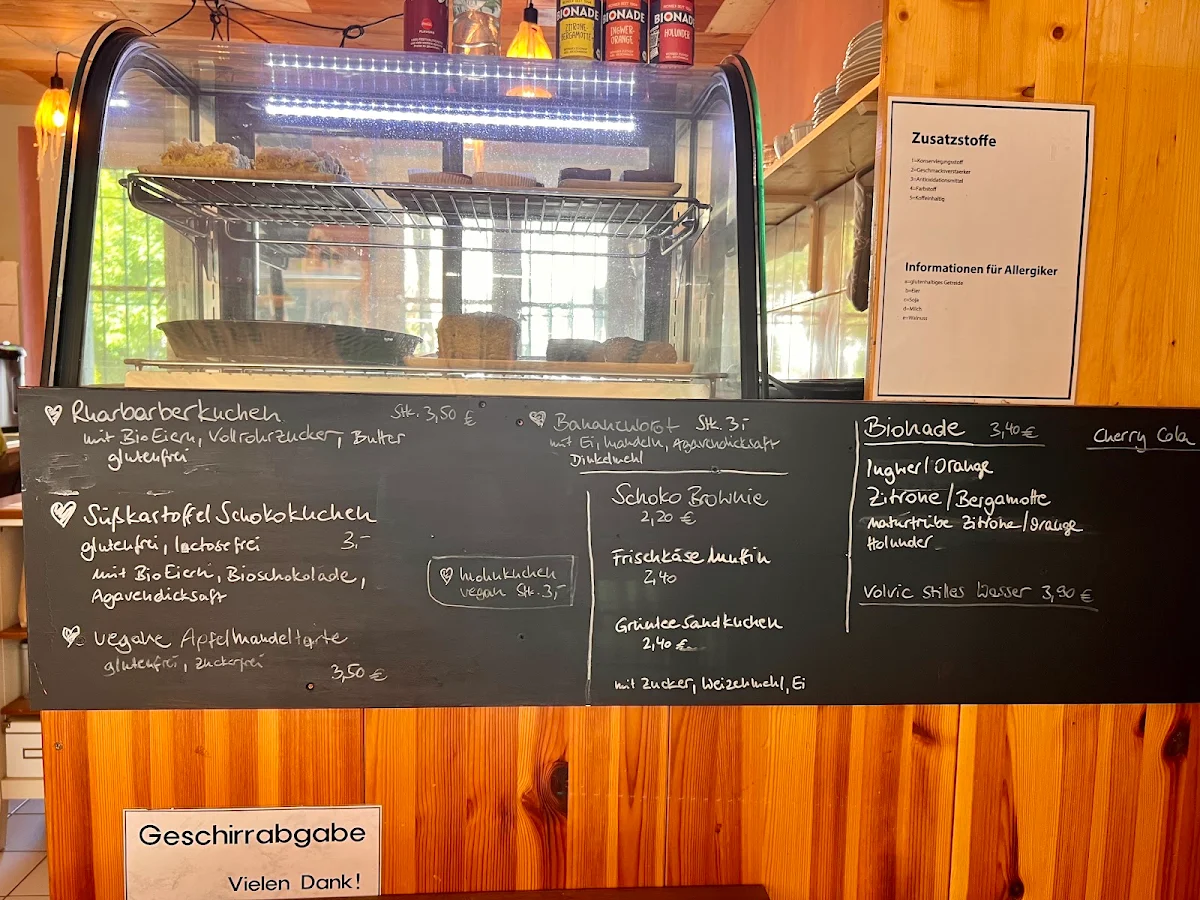 BIONADE
ZITRONE
BERGAMOTTE
BIONADE
INGWER-
ORANGE
BIONADE
HOLUNDER
Zusatzstoffe
1=Konservierungsstoff
2=Geschmacksverstaerker
3=Antioxidationsmittel
4=Farbstoff
5=Koffeinhaltig
Informationen für Allergiker
a=glutenhaltiges Getreide
b=Eier
c=Soja
d=Milch
e=Walnuss
Rharbarberkuchen Stk. 3,50 €
mit BioEiern, Vollrohrzucker, Butter
glutenfrei
Süßkartoffel Schokokuchen
glutenfrei, lactosefrei 3,-
mit BioEiern, Bioschokolade,
Agavendicksaft
vegane Apfelmandeltorte
glutenfrei, zuckerfrei
3,50 €
Mohnkuchen
vegan Stk. 3,-
Bananenbrot Stk. 3,-
mit Ei, Mandeln, Agavendicksaft
Dinkelmehl
Schoko Brownie
2,20 €
Frischkäse Muffin
2,40
Grüntee Sandkuchen
2,40 €
mit Zucker, Weizenmehl, Ei
Bionade 3,40 €
Ingwer/Orange
Zitrone/Bergamotte
naturtrübe Zitrone/Orange
Holunder
Volvic stilles Wasser 3,90 €
Cherry Cola
Geschirrabgabe
Vielen Dank!